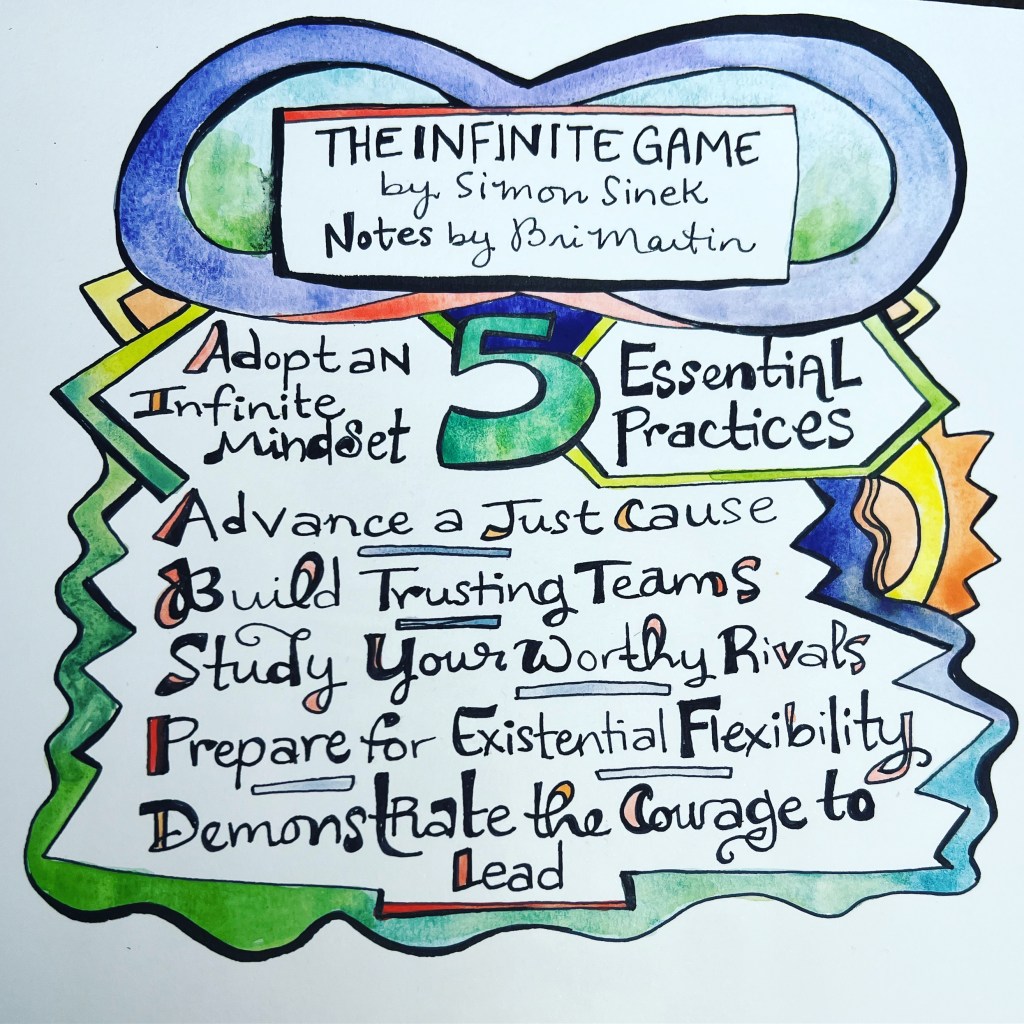 THE INFINITE GAME
by Simon Sinek
Notes by Bri Martin
Adopt an
Infinite
Mindset
5
Essential
Practices
Advance a Just Cause
Build Trusting Teams
Study Your Worthy Rivals
Prepare for Existential Flexibility
Demonstrate the Courage to
Lead